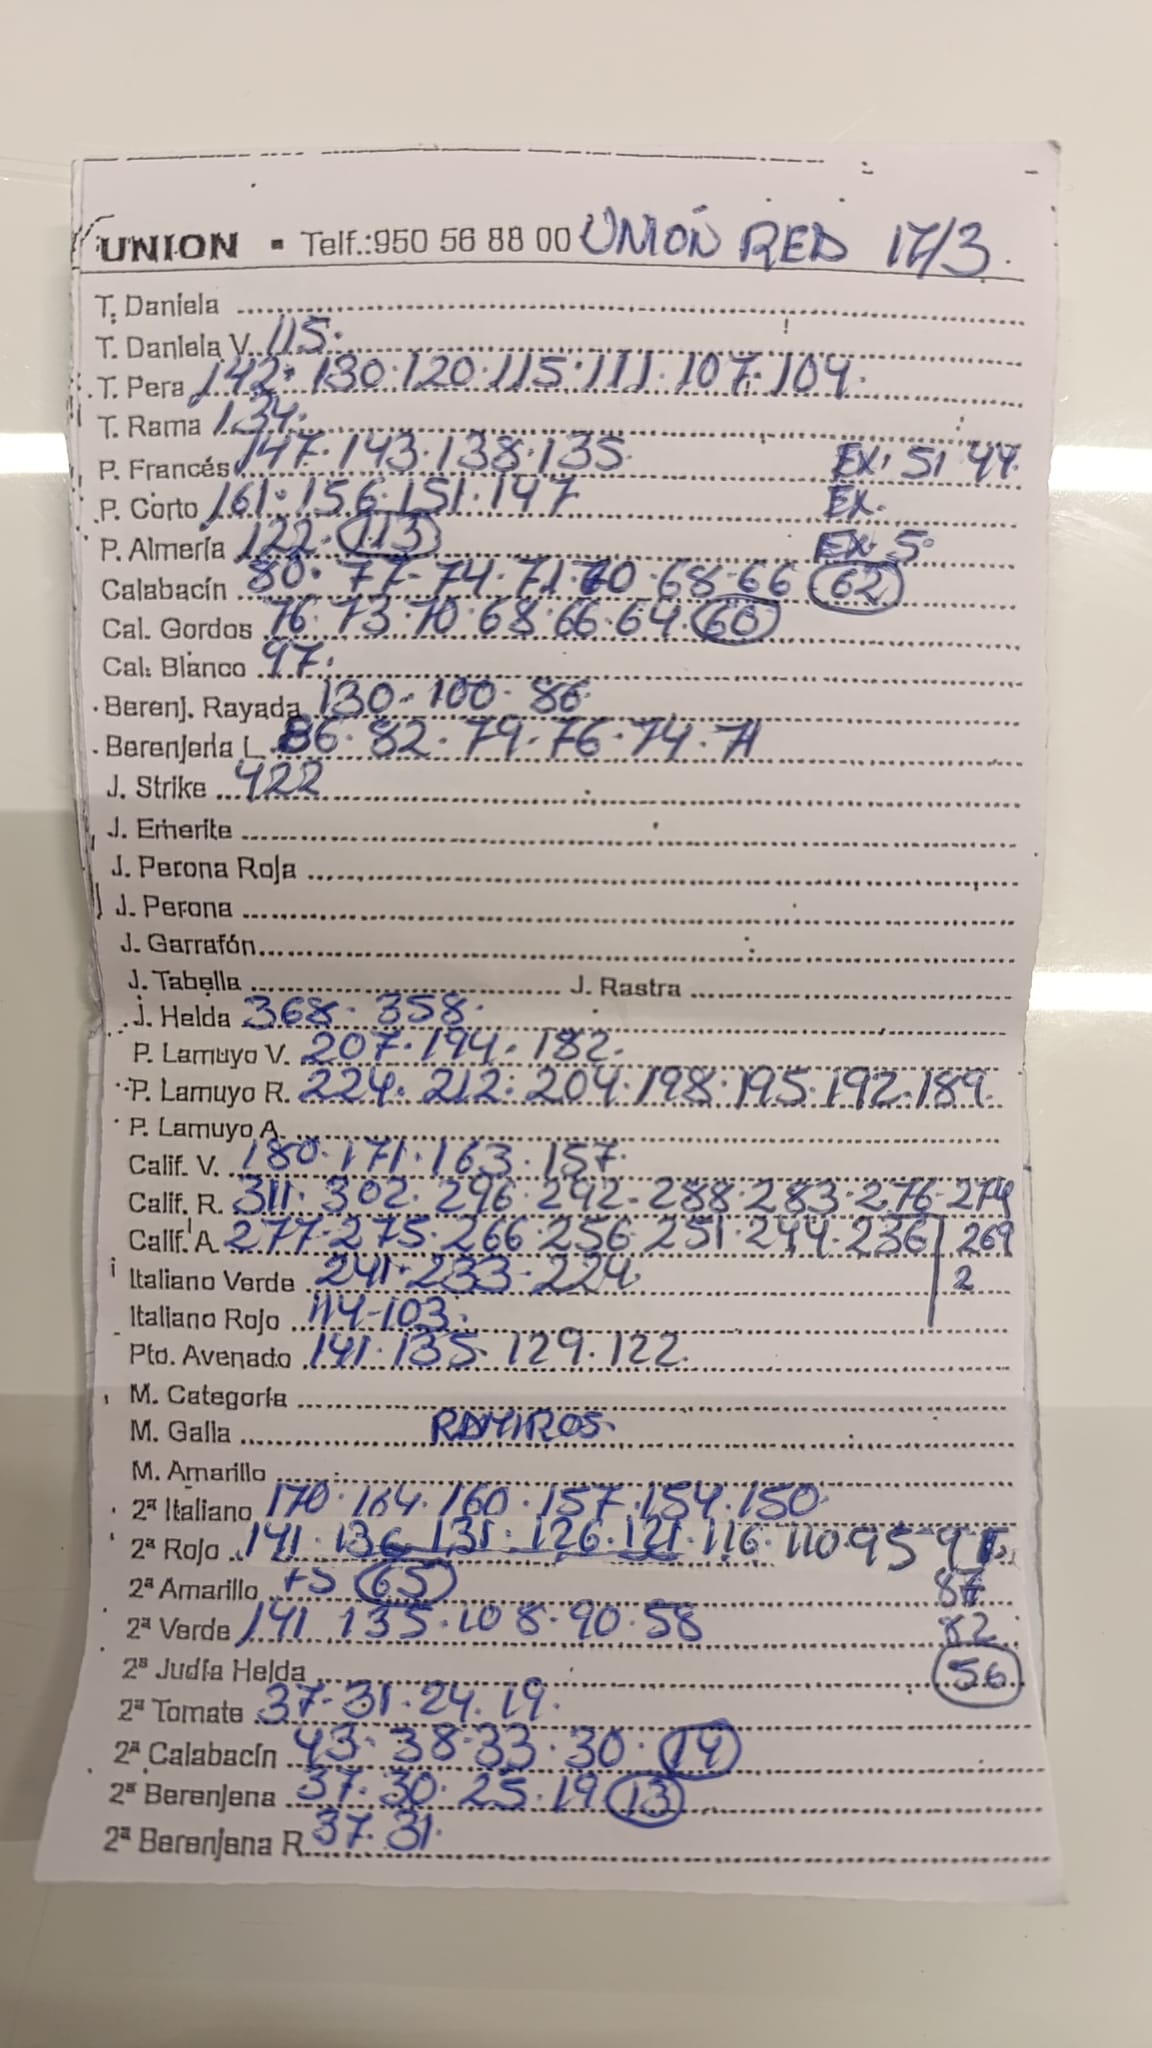 UNION ▪ Telf.:950 56 88 00 UNIÓN RED 17/3.
T. Daniela
T. Daniela V. 115.
T. Pera 142. 130.120.115.111.107.104.
T. Rama 134.
P. Francés 147.143.138.135. EX. 51 44.
P. Corto 161.156.151.147 EX.
P. Almería 122. 113 EX. 5.
Calabacín 80. 77-74.71.70.68-66 62
Cal. Gordos 76.73.70.68.66.64. 60
Cal. Blanco 97.
Berenj. Rayada 130-100-86.
Berenjena L. 86.82.79.76.74.71
J. Strike 422
J. Emerite
J. Perona Roja
J. Perona
J. Garrafón
J. Tabella J. Rastra
J. Helda 368.358.
P. Lamuyo V. 207.194.182.
P. Lamuyo R. 224.212.204.198.195.192.189.
P. Lamuyo A.
Calif. V. 180.171.163.157.
Calif. R. 311.302.296.292-288.283.276-274
Calif. A. 277-275.266.256.251.244.236 269
Italiano Verde 241.233-224. 2
Italiano Rojo 114-103.
Pto. Avenado 141.135.129.122.
M. Categoría
M. Galla RAMIROS.
M. Amarillo
2ª Italiano 170.164.160.157.154.150.
2ª Rojo 141.136 131.126.121.116.110.95-9
2ª Amarillo 65 87
2ª Verde 141 135.108.90.58 82
2ª Judía Helda 56
2ª Tomate 37-31.24.19.
2ª Calabacín 43.38-33.30. 14
2ª Berenjena 37.30.25.19 13
2ª Berenjena R. 37.31.